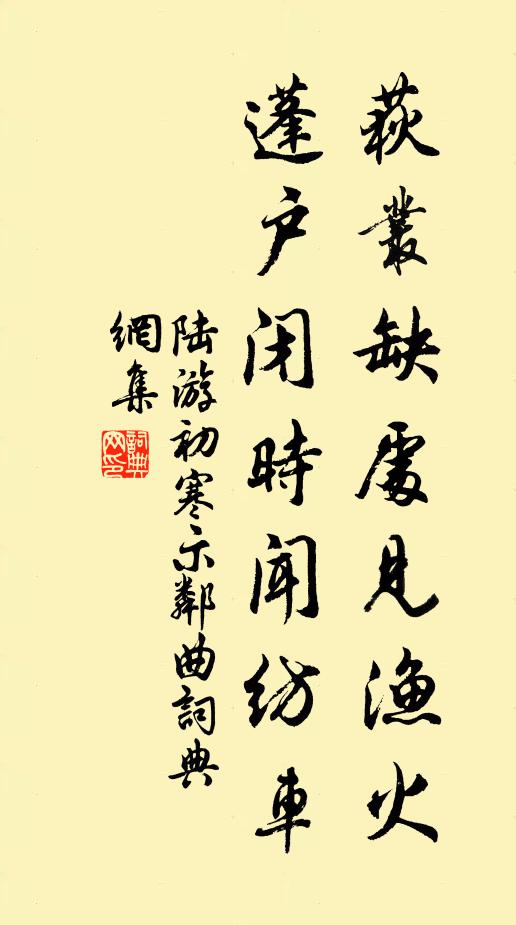 荻叢缺處見漁火
蓬戶閉時聞紡車
陆游初寒示鄰曲詞典
網集
詞典
网印